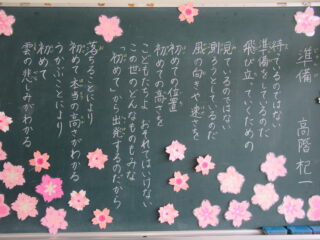 準備
高階杞一
待っているのではない
準備をしているのだ
飛び立っていくための
見ているのではない
測ろうとしているのだ
風の向きや速さを
初めての位置
初めての高さを
こどもたちよ おそれてはいけない
この世のどんなものもみな
「初めて」から出発するのだから
落ちることにより
初めてほんとうの高さがわかる
うかぶことにより
初めて
雲の悲しみがわかる